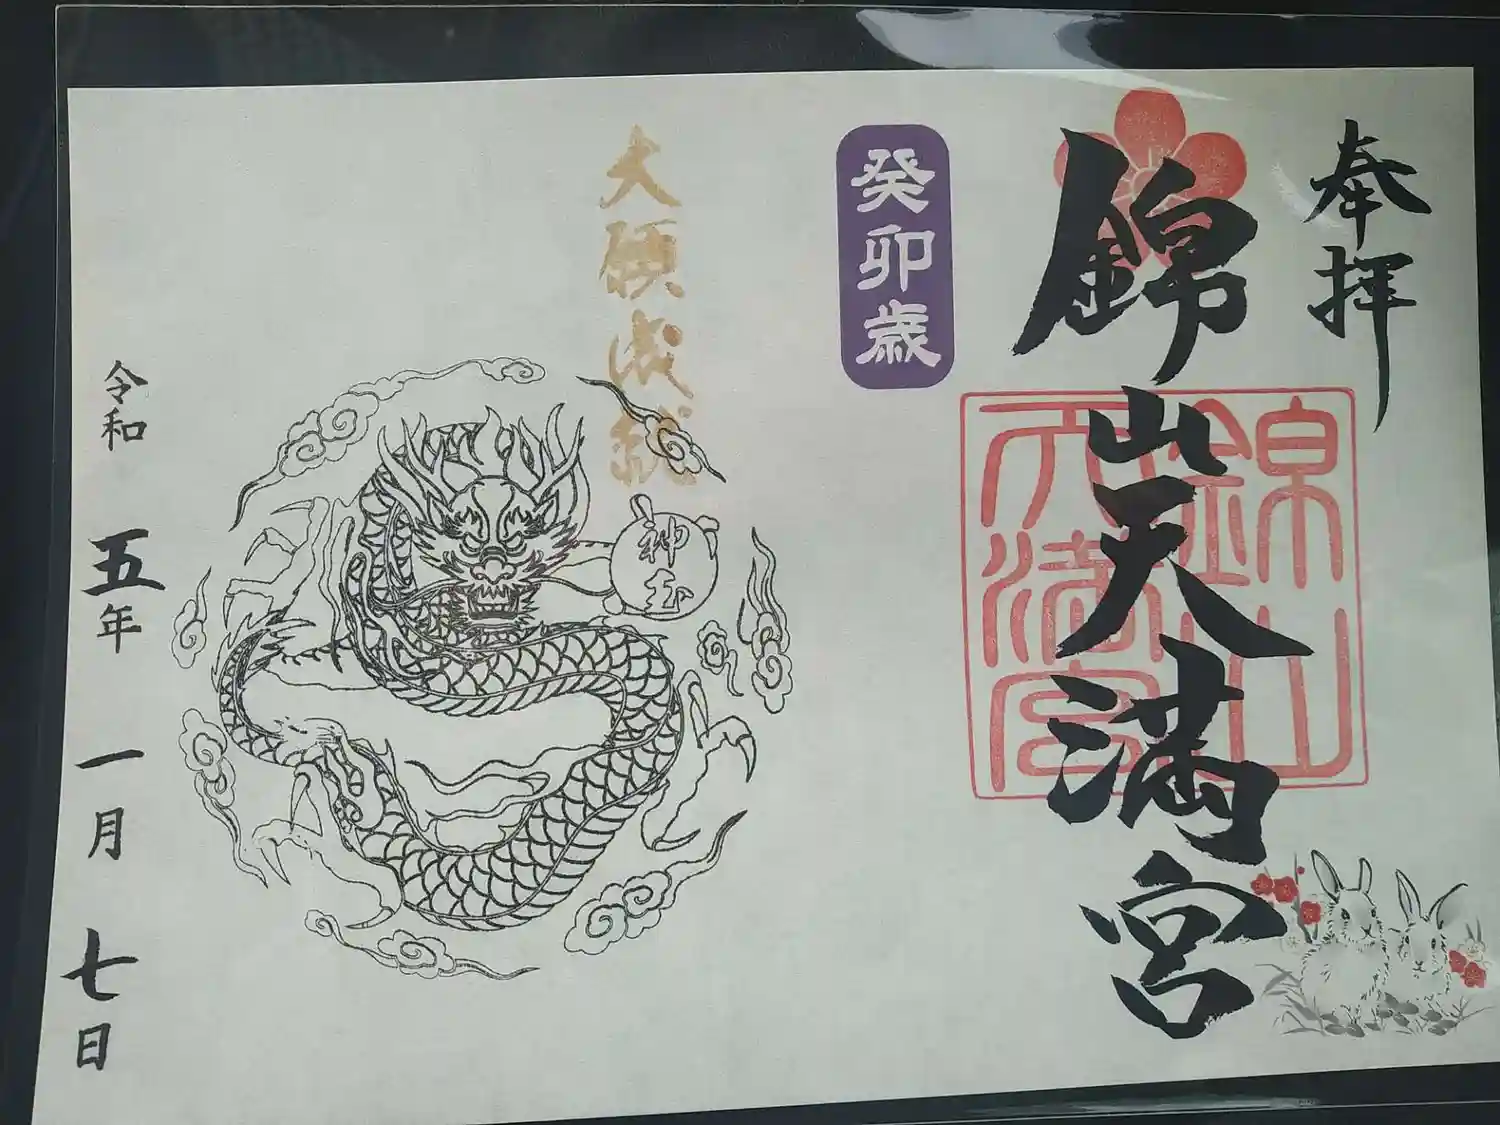 奉拝
錦山天満宮
錦山
天満宮
癸卯歳
大願成就
神玉
令和五年一月七日